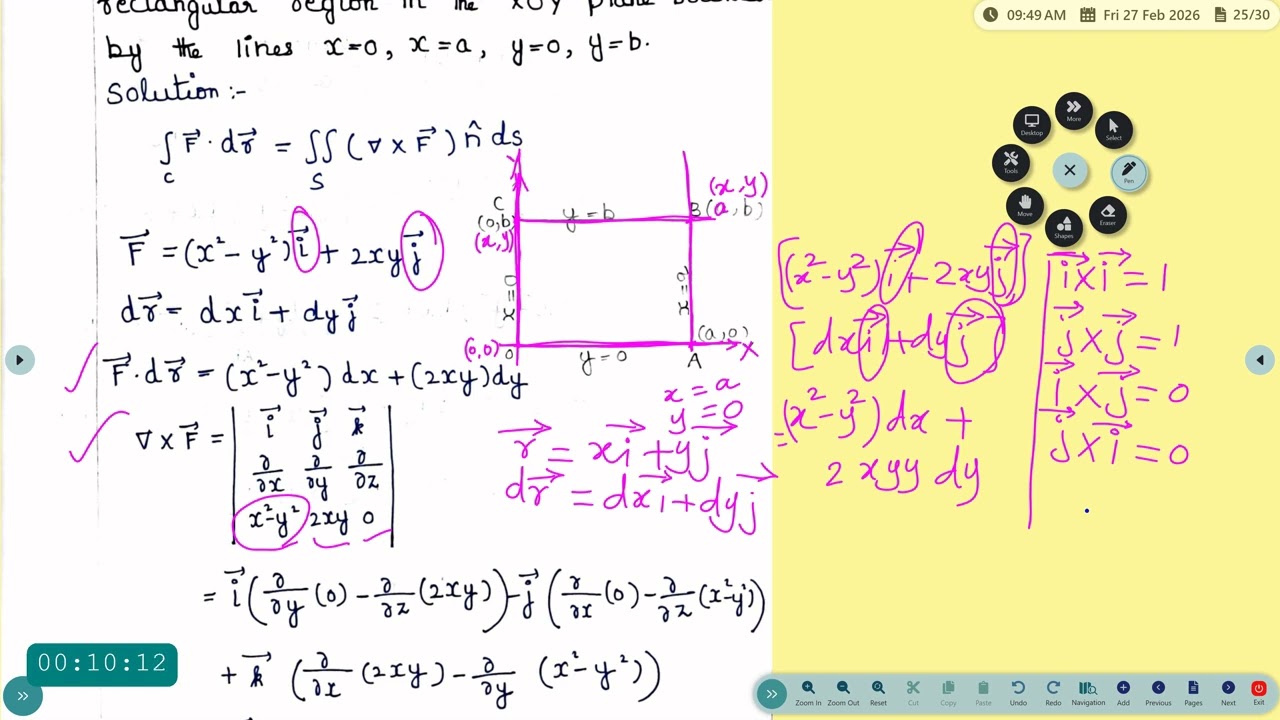 09:49 AM Fri 27 Feb 2026 25/30
rectangular region in the xoy plane
by the lines x=0, x=a, y=0, y=b.
Solution:-
∫_C F⃗·dr⃗ = ∬_S (∇×F⃗) n̂ ds
F⃗ = (x²-y²)i⃗ + 2xyj⃗
dr⃗ = dxi⃗ + dyj⃗
F⃗·dr⃗ = (x²-y²)dx+(2xy)dy
∇×F⃗ = | i⃗ j⃗ k⃗ |
∂/∂x ∂/∂y ∂/∂z
x²-y² 2xy 0
= i⃗(∂/∂y(0) - ∂/∂z(2xy)) - j⃗(∂/∂x(0) - ∂/∂z(x²-y²))
+ k⃗ (∂/∂x(2xy) - ∂/∂y (x²-y²))
Y
C
(0,b)
(x,y)
y=b
(x,y)
B(a,b)
x=0
x=a
(a,0)
(0,0)
0
y=0
A
X
x=a
y=0
r⃗ = xi⃗+yj⃗
dr⃗ = dxi⃗+dyj⃗
[(x²-y²)i⃗+2xyj⃗]
[dxi⃗+dyj⃗)
=(x²-y²)dx +
2xyy dy
i⃗×i⃗=1
j⃗×j⃗=1
i⃗×j⃗=0
j⃗×i⃗=0
More
Desktop
Select
Tools
Pen
Move
Eraser
Shapes
00:10:12
Zoom In Zoom Out Reset Cut Copy Paste Undo Redo Navigation Add Previous Pages Next Exit